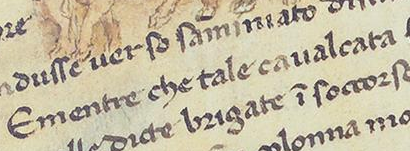 ore
ndusse uerso sāminiato
Ementre che tale caualcata
dicte brigate ī soccorso
olonna mo